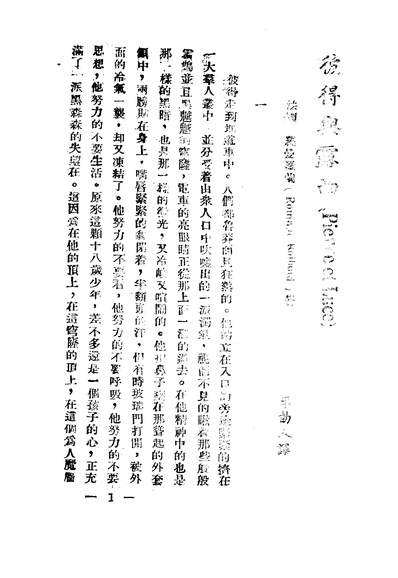 彼得與露西 (Pierre et Luce)
法國 羅曼羅蘭 (Romain Rolland) 著
李劼人譯
一
彼得走到地道車中。人們都魯莽的且狂熱的。他站立在入口的旁邊緊緊的擠在
一大羣人叢中，並分受着由衆人口中吹噓出的一派濁氣，視而不見的眼看那些殷殷
鳴並且黑魆魆的穹窿，電車的亮眼睛正從那上面一溜的過去。在他精神中的也是
那一樣的黑暗，也是那一樣的微光，又冷峭又喧鬧的。他把鼻子窩在那聳起的外套
領中，兩膀貼在身上，嘴唇緊緊的閉着，半額頭的汗，但有時玻璃門打開，被外
面的冷氣一襲，却又凍結了。他努力的不要看，他努力的不要呼吸，他努力的不要
思想，他努力的不要生活。原來這顆十八歲少年，差不多還是一個孩子的心，正充
滿了一派黑森森的失望在。這因爲在他的頂上，在這穹窿的頂上，在這個爲人魔
— 1 —